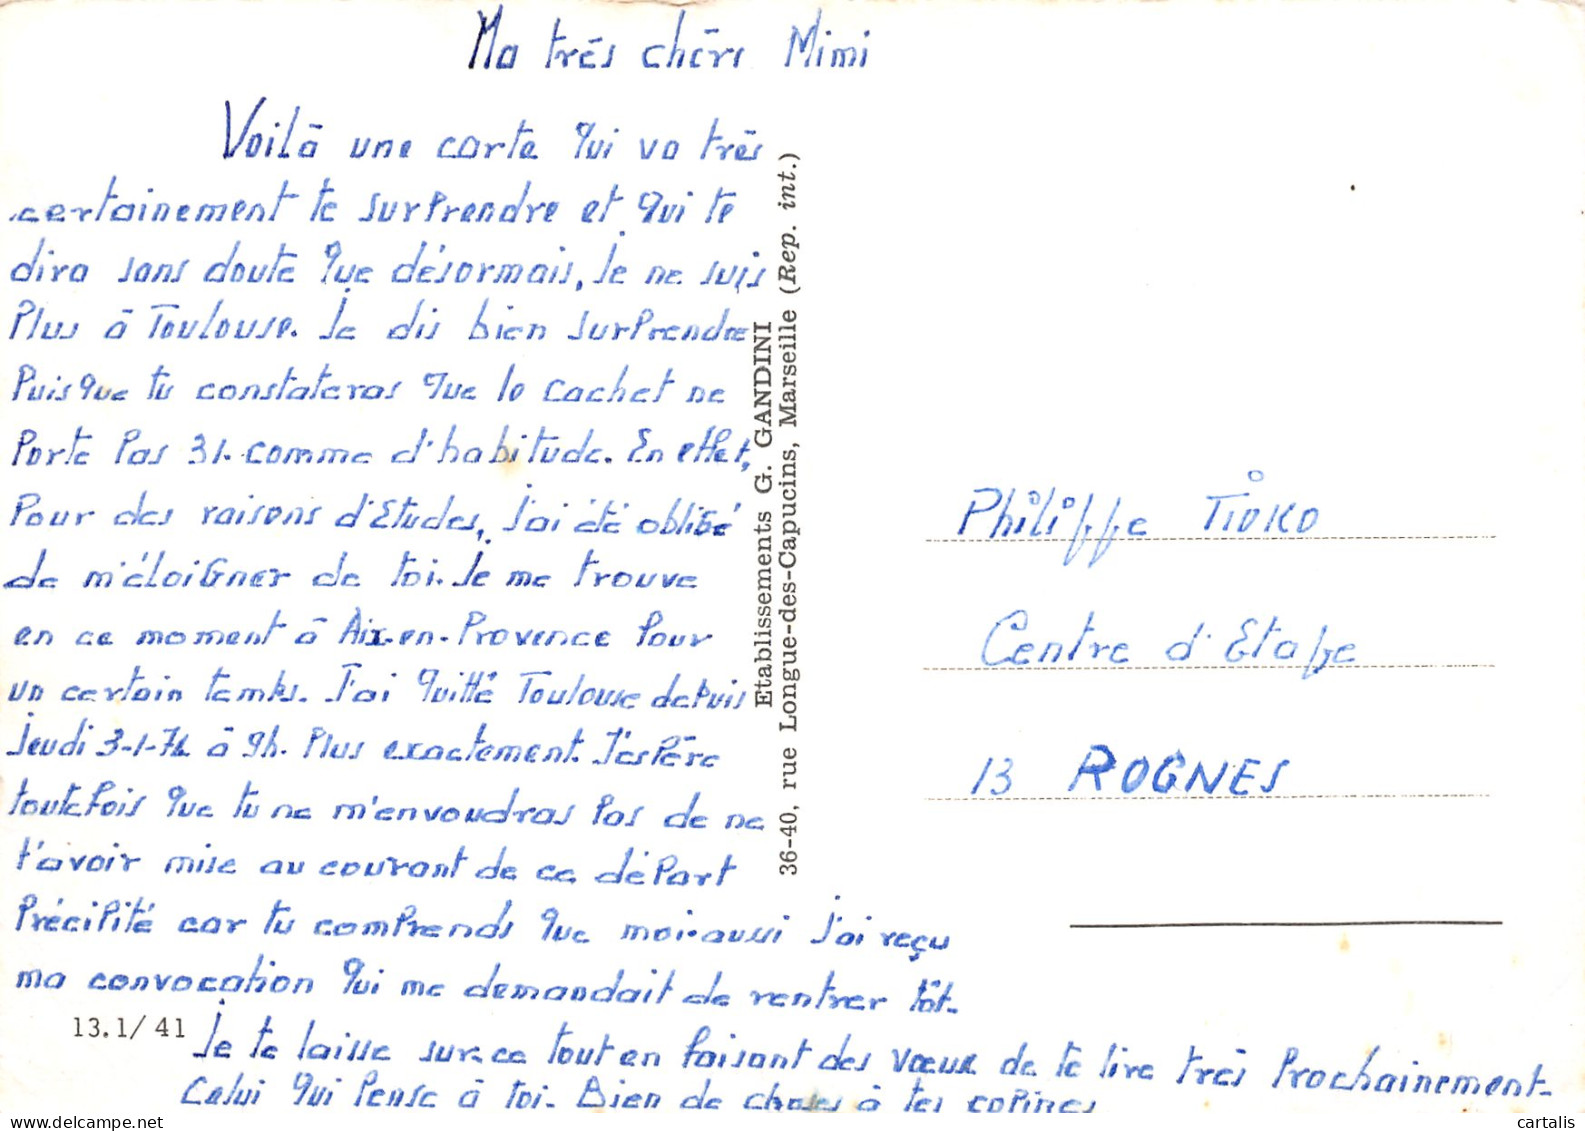 Ma très chère Mimi
Voilà une carte qui va très
certainement te surprendre et qui te
dira sans doute que désormais, je ne suis
plus à Toulouse. Je dis bien surprendre
puisque tu constateras que la cachet ne
porte pas 31. comme d'habitude. En effet,
pour des raisons d'études, j'ai été obligé
de m'éloigner de toi. Je me trouve
en ce moment à Aix-en-Provence pour
un certain temps. J'ai quitté Toulouse depuis
jeudi 3-1-74 à 9h. plus exactement. J'espère
toutefois que tu ne m'envoudras pas de ne
t'avoir mise au courant de ce départ
précipité car tu comprends que moi-aussi j'ai reçu
ma convocation qui me demandait de rentrer tôt.
Je te laisse sur-ce tout en faisant des vœux de te lire très prochainement.
Celui qui pense à toi. Bien de choses à tes copines
13.1/ 41
Etablissements G. GANDINI
36-40, rue Longue-des-Capucins, Marseille (Rep. int.)
Philippe
Centre d'Etape
13 ROGNES
delcampe.net
cartalis